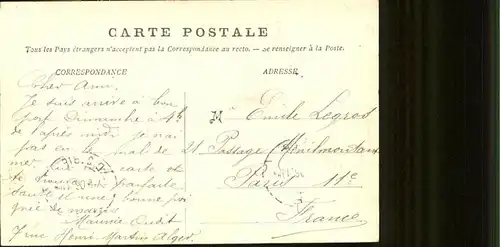 CARTE POSTALE
Tous les Pays étrangers n'acceptent pas la Correspondance au recto. — Se renseigner à la Poste.
CORRESPONDANCE
ADRESSE
Cher Ami
Je suis arrivé à bon
port Dimanche à 4h
de l'après midi je n'ai
pas eu le mal de
mer
carte et
te
parfaite
santé et une bonne
Maurice
7 rue Henri Martin Alger
M
Emile Legros
21 Passage Ménilmontant
Paris 11e
France